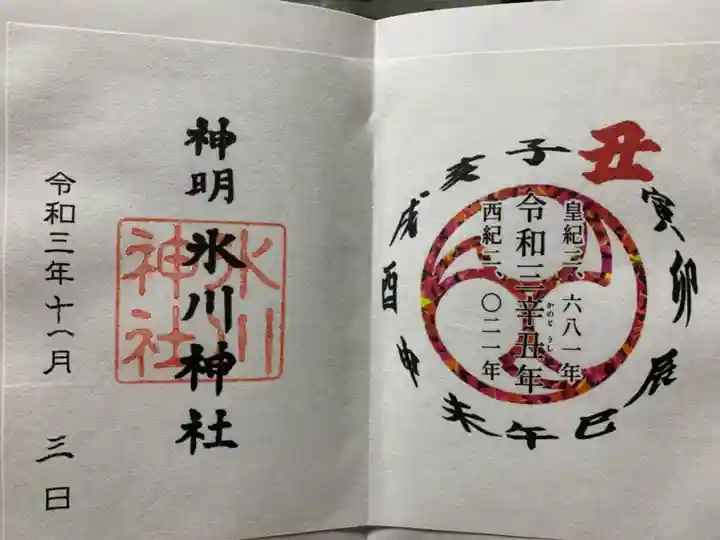 丑
寅
卯
辰
巳
午
未
申
酉
戌
亥
子
皇紀二、六八一年
令和三辛丑年
かのと うし
西紀二、〇二一年
神明氷川神社
氷川
神社
令和三年十一月 三日